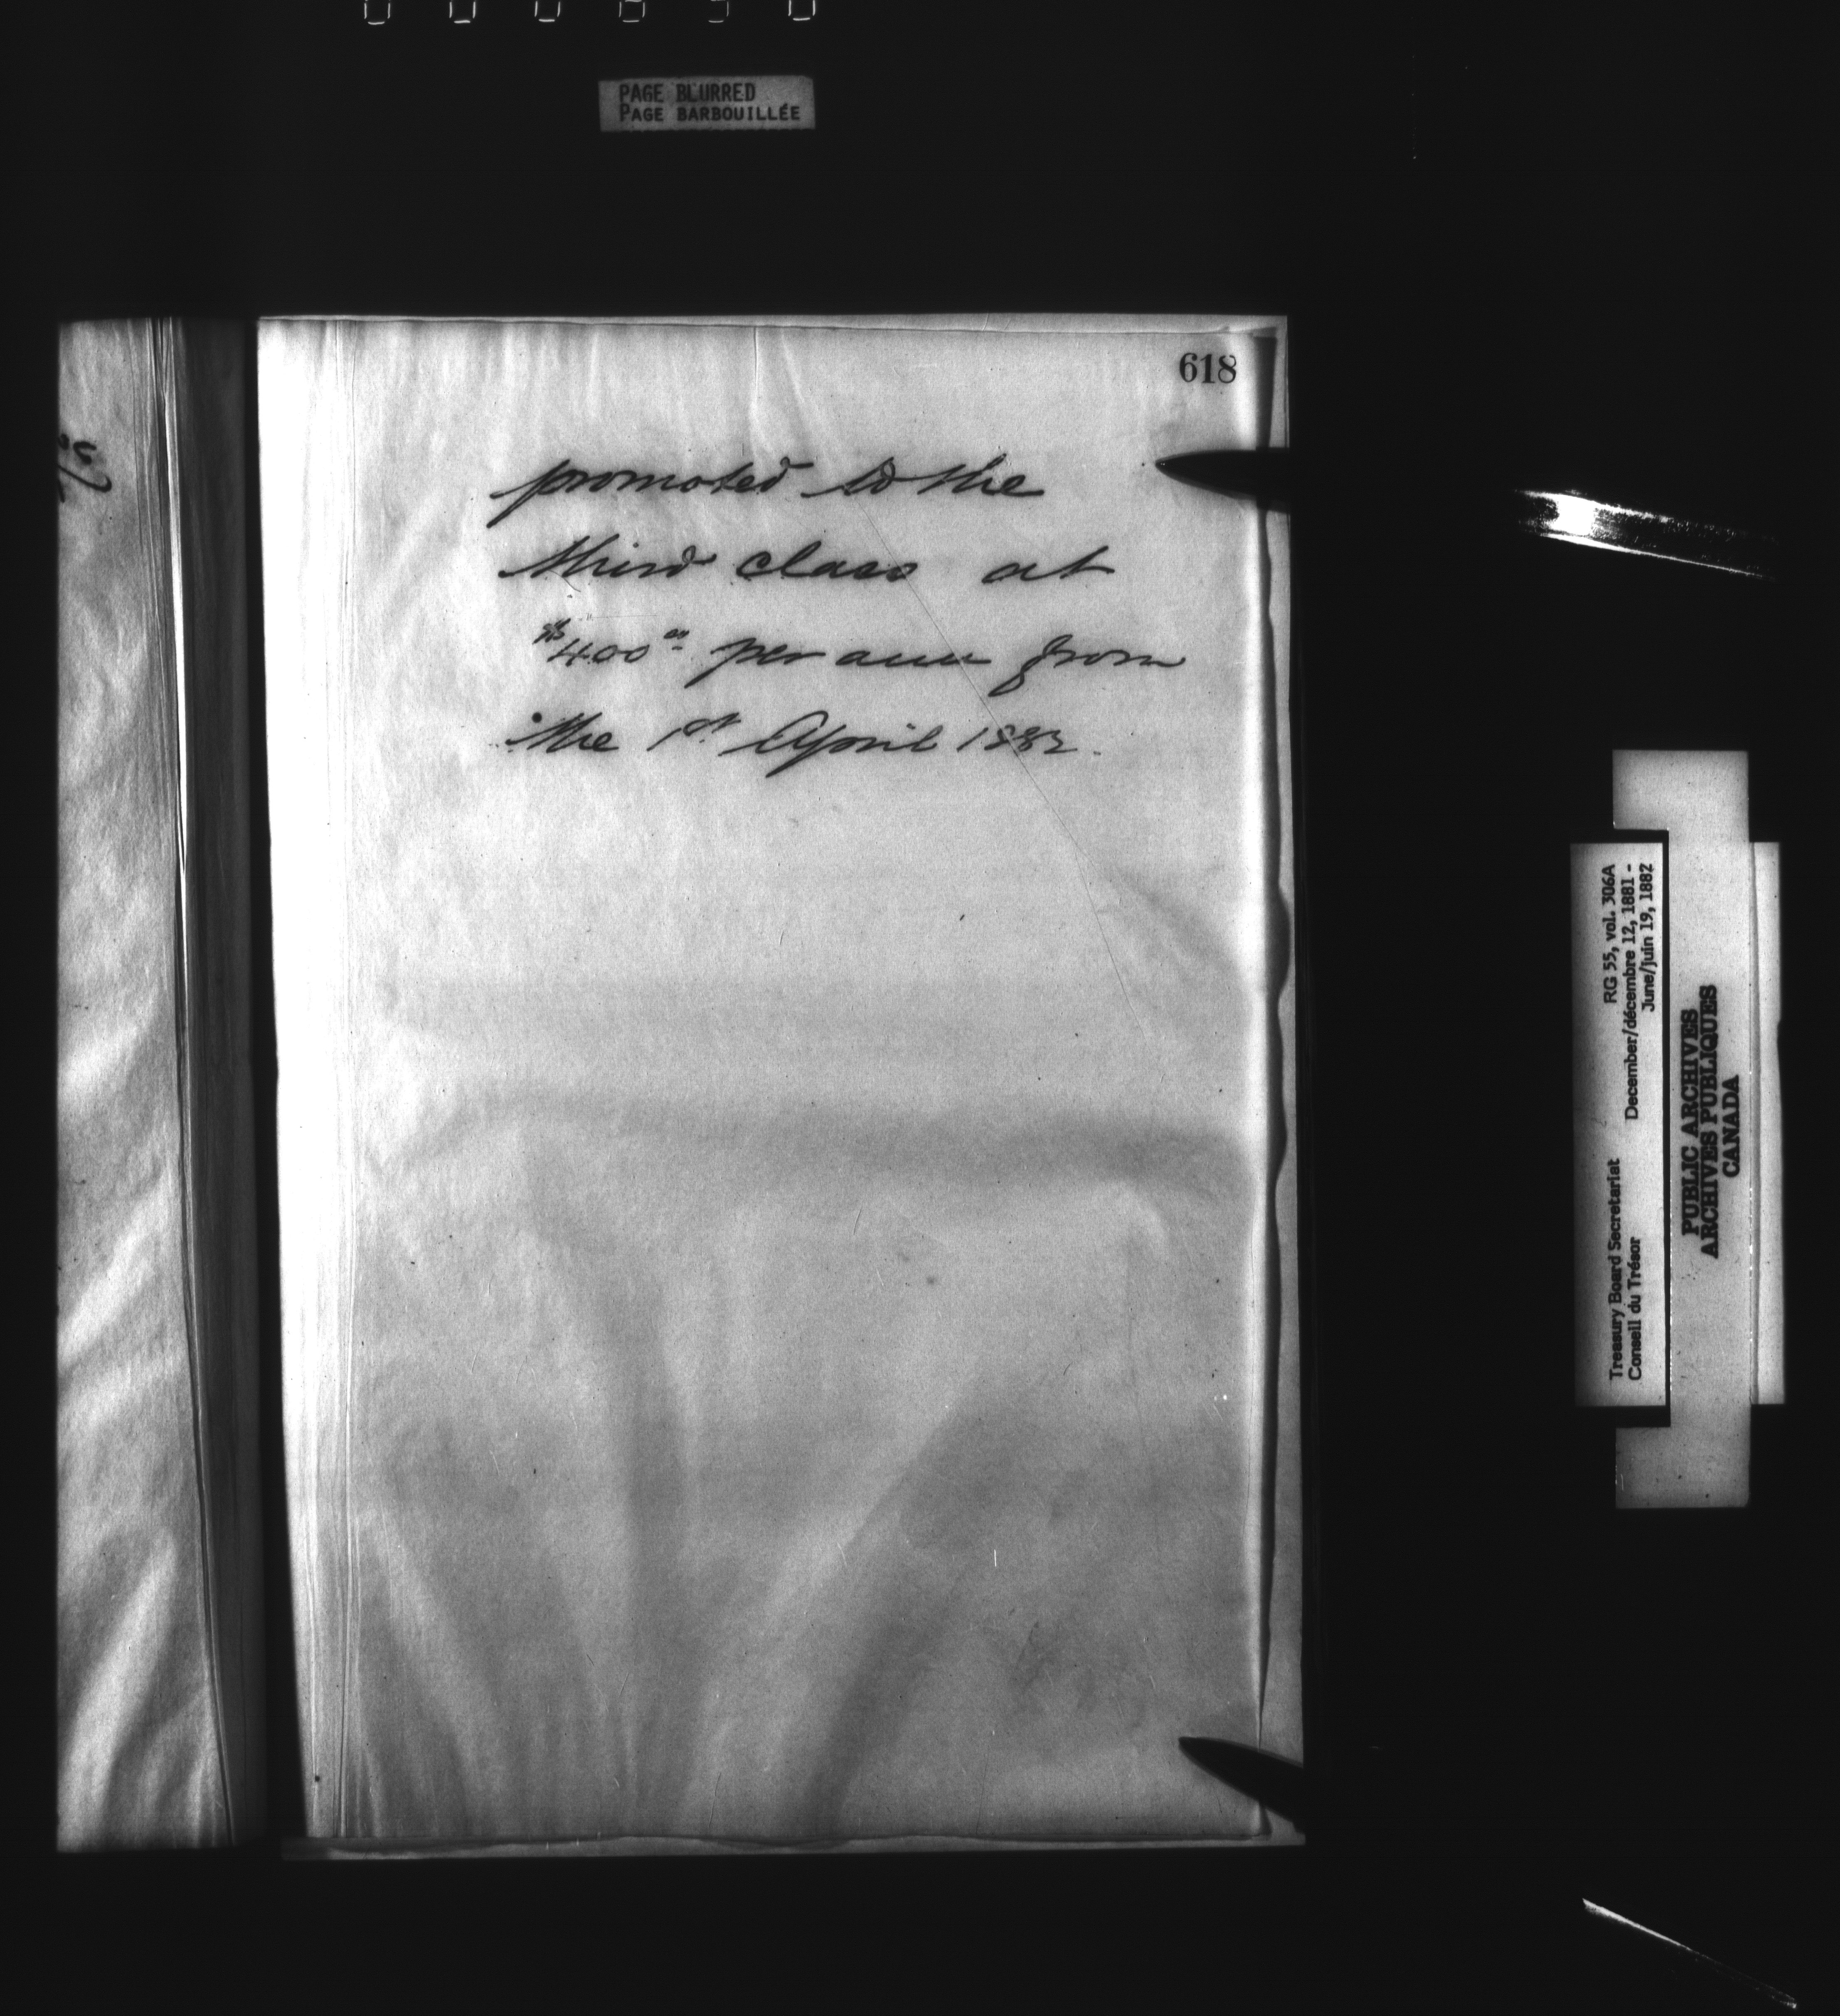 PAGE BLURRED
PAGE BARBOUILLÉE
618
promoted to the
third class at
$400.00 per ann from
the 1st April 1882.
Treasury Board Secretariat RG 55, vol. 306A
Conseil du Trésor December/décembre 12, 1881 -
June/juin 19, 1882
PUBLIC ARCHIVES
ARCHIVES PUBLIQUES
CANADA